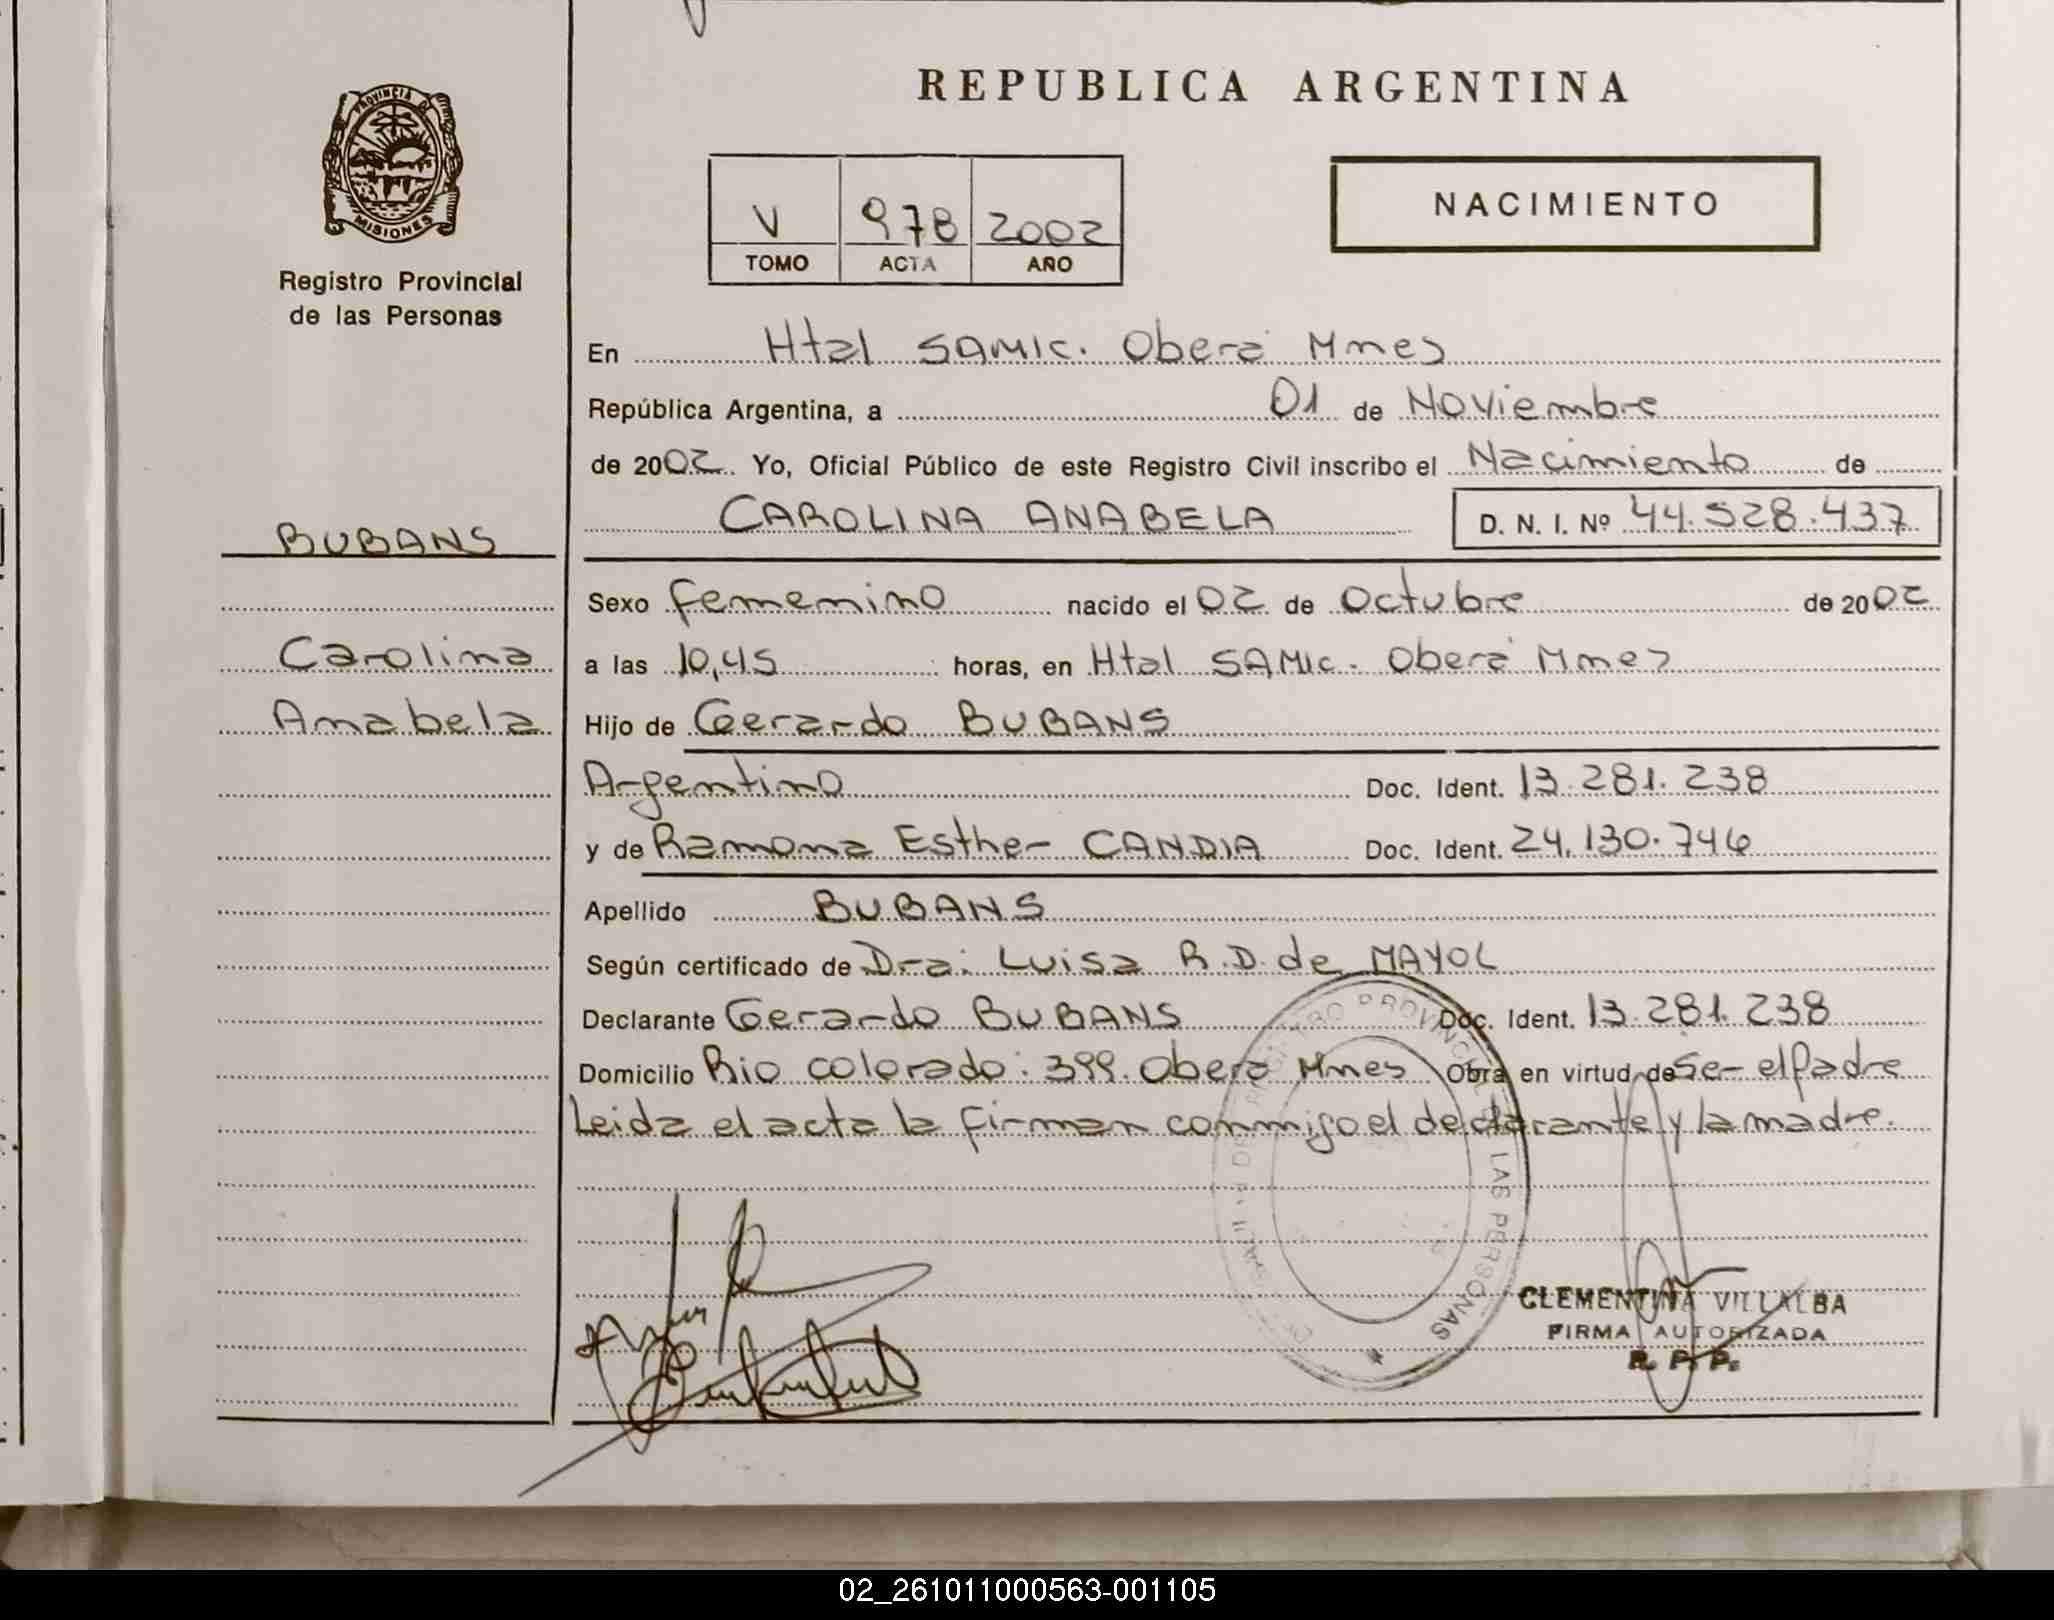 REPUBLICA ARGENTINA
PROVINCIA D
MISIONES
Registro Provincial
de las Personas
V 978 2002
TOMO ACTA AÑO
NACIMIENTO
En Htal SAMIC. Oberá Mnes
República Argentina, a 01 de Noviembre
de 2002 Yo, Oficial Público de este Registro Civil inscribo el Nacimiento de
CAROLINA ANABELA D. N. I. Nº 44.528.437
BUBANS
Carolina
Anabela
Sexo femenino nacido el 02 de Octubre de 2002
a las 10,45 horas, en Htal SAMIC. Oberá Mnes
Hijo de Gerardo BUBANS
Argentino Doc. Ident. 13.281.238
y de Ramona Esther CANDIA Doc. Ident. 24.130.746
Apellido BUBANS
Según certificado de Dra: Luisa R.D. de MAYOL
Declarante Gerardo BUBANS Doc. Ident. 13.281.238
Domicilio Rio colorado: 399. Oberá Mnes Obra en virtud de Ser el Padre
Leida el acta la firman conmigo el declarante y la madre.
REGISTRO PROVINCIAL DE LAS PERSONAS
CLEMENTINA VILLALBA
FIRMA AUTORIZADA
R. P. P.
02_261011000563-001105